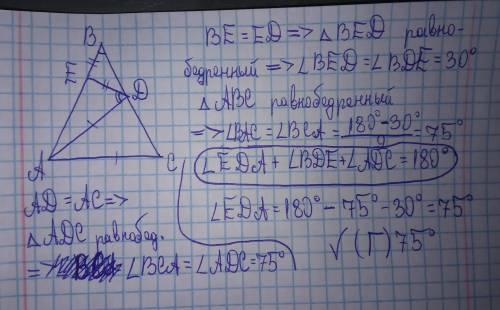 B
E
D
A
C
BE = ED => △BED равно-
бедренный => ∠BED = ∠BDE = 30°
△ABC равнобедренный
=> ∠BAC = ∠BCA = (180° - 30°)/2 = 75°
∠EDA + ∠BDE + ∠ADC = 180°
∠EDA = 180° - 75° - 30° = 75°
✓ (Г) 75°
AD = AC =>
△ADC равнобед.
=> ∠BCA = ∠ADC = 75°